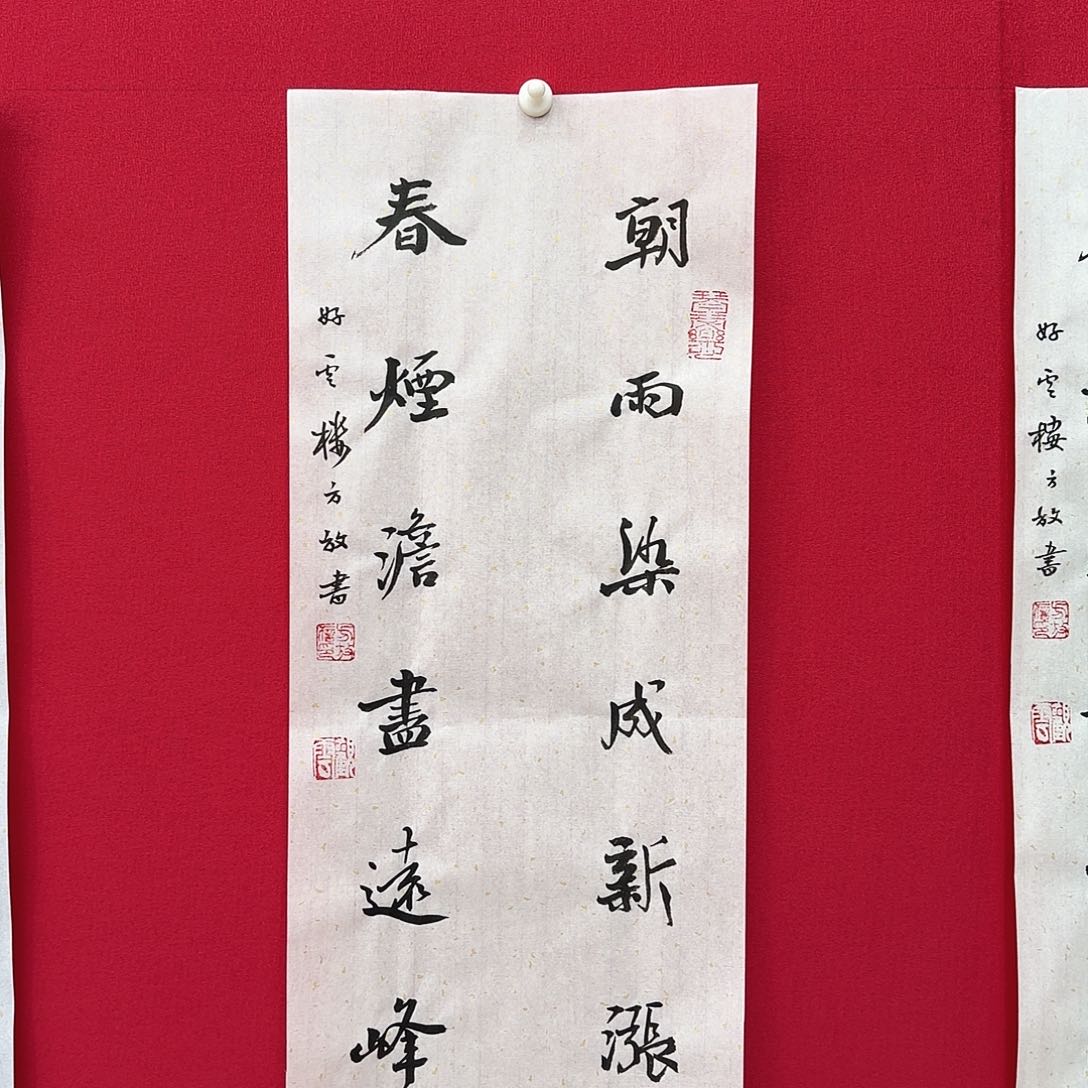 朝雨染成新漲
春煙澹盡遠峰
好雲樓方放書
好雲樓方放書